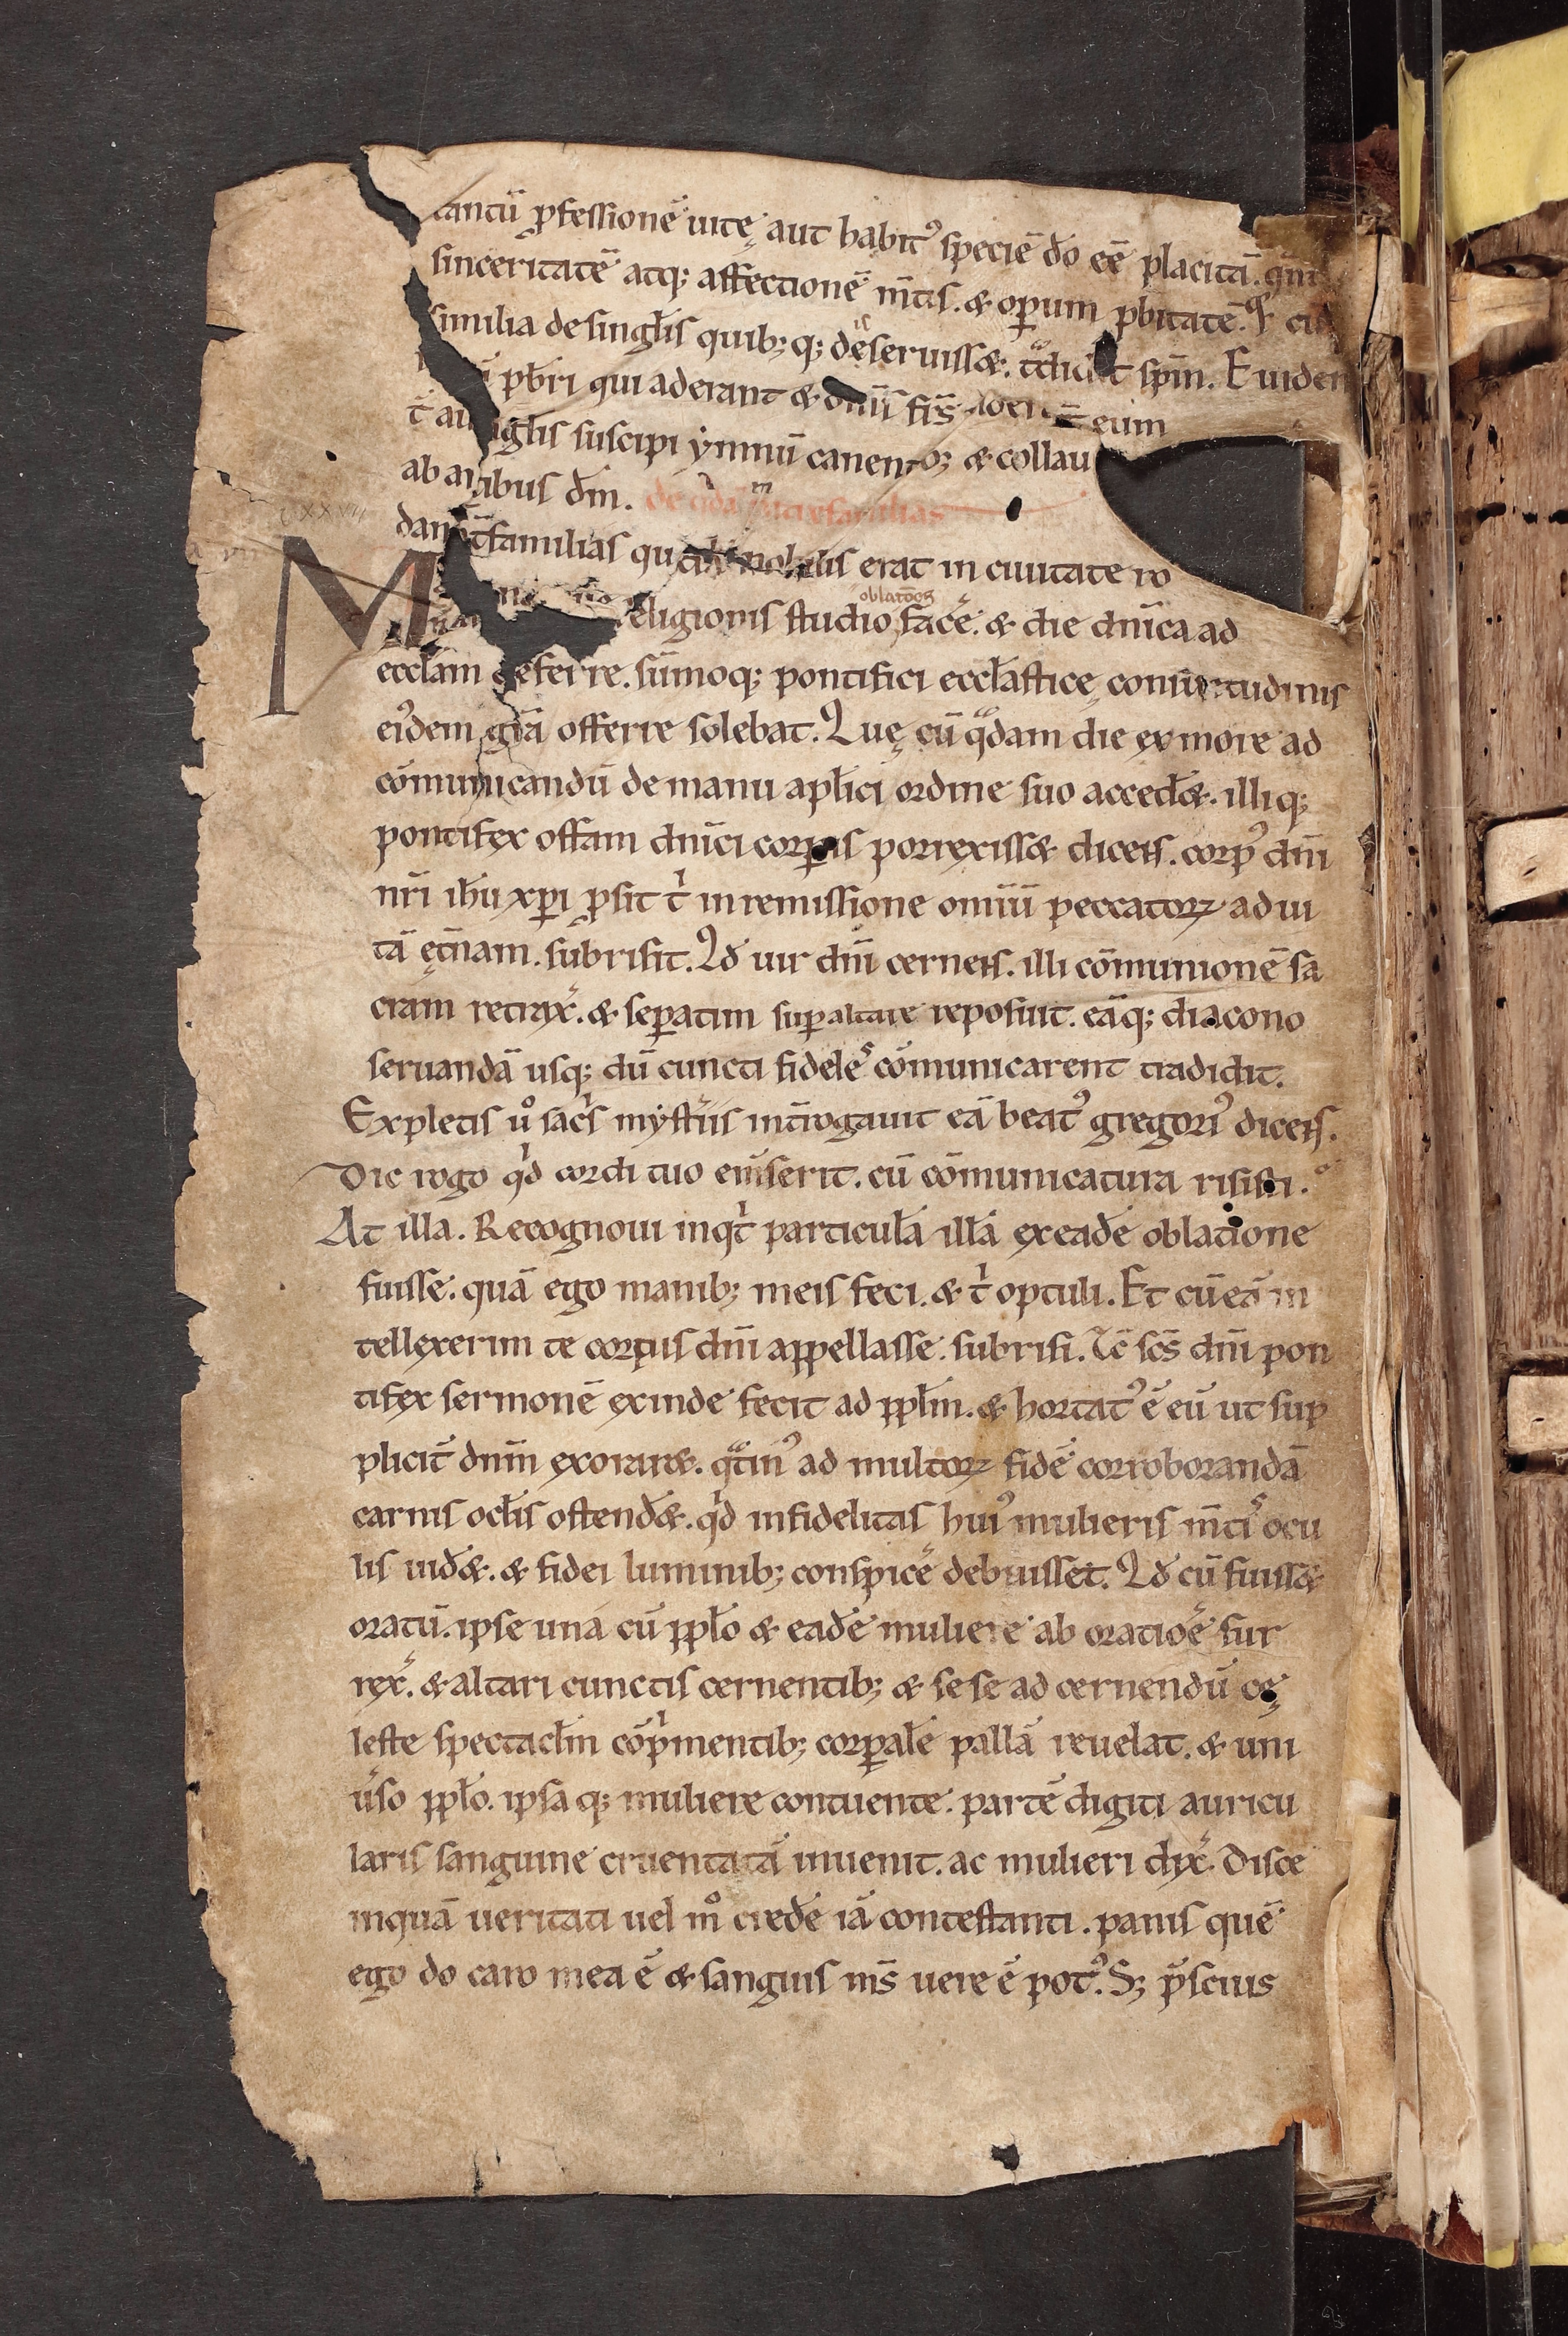 tantū ꝓfessionē uitę aut habitꝰ speciē do eē placitā. qm̄
sinceritatē atq; affectionē m̄tis. & oꝑum ꝓbitatē.
similia de singlis quib;q; deseruissæ. spm̄. Euiden
pbr̄i qui aderant & fr̄s eum
suscipi ymnū canen & collau
ibus dm̄. familias
familias nobilis erat in ciuitate ro
religionis studio oblatōes facē. & die dn̄ica ad
eccłam deferre. sūmoq; pontifici eccłastice consuetudinis
eiꝰdem grā offerre solebat. Quę cū qͣdam die ex more ad
cōmunicandū de manu apłici ordine suo accedæ. illiq;
pontifex offam dn̄ici corporis porrexissæ dicens. corpꝰ dn̄i
nr̄i ihu xp̄i ꝓsit tͥ in remissione omiū peccatoꝝ ad ui
tā ęt̄nam. subrisit. Qd uir dn̄i cernens. illi cōmunionē sa
cram retrax̄. & seꝑatim suꝑ altare reposuit. eāq; diacono
seruandā usq; dū cuncti fideles cōmunicarent tradidit.
Expletis uͦ sacͥs mysteͥiis int̄rogauit eā beatꝰ gregoriꝰ dicens.
Dic rogo qͥd cordi tuo emͥserit. cū cōmunicatura risisti.
At illa. Recognoui inqͥt particulā illā ex eadē oblatione
fuisse. quā ego manib; meis feci. & tͥ optuli. Et cū eā in
tellexerim te corpus dn̄i appellasse. subrisi. Tc̄ scs̄ dn̄i pon
tifex sermonē exinde fecit ad ppłm. & hortatꝰ ē eū ut sup
plicit̄ dnm̄ exoraræ. qͣtinꝰ ad multoꝝ fidē corroborandā
carnis ocłis ostendæ. qͥd infidelitas huiꝰ mulieris m̄tis ocu
lis uidæ. & fidei luminib; conspicē debuisset. Qd cū fuissæ
oratū. ipse una cū ppło & eadē muliere ab oratiōe sur
rex̄. & altari cunctis cernentib; & sese ad cernendū cę
leste spectacłm cōpͥmentib; corꝑalē pallā reuelat. & uni
ūso ppło. ipsaq; muliere contuente. partē digiti auricu
laris sanguine cruentatā inuenit. ac mulieri dix̄. Disce
inquā ueritati uel mͦ crede iā contestanti. panis quē
ego do caro mea ē & sanguis ms̄ uere ē potꝰ. S; p̄scius